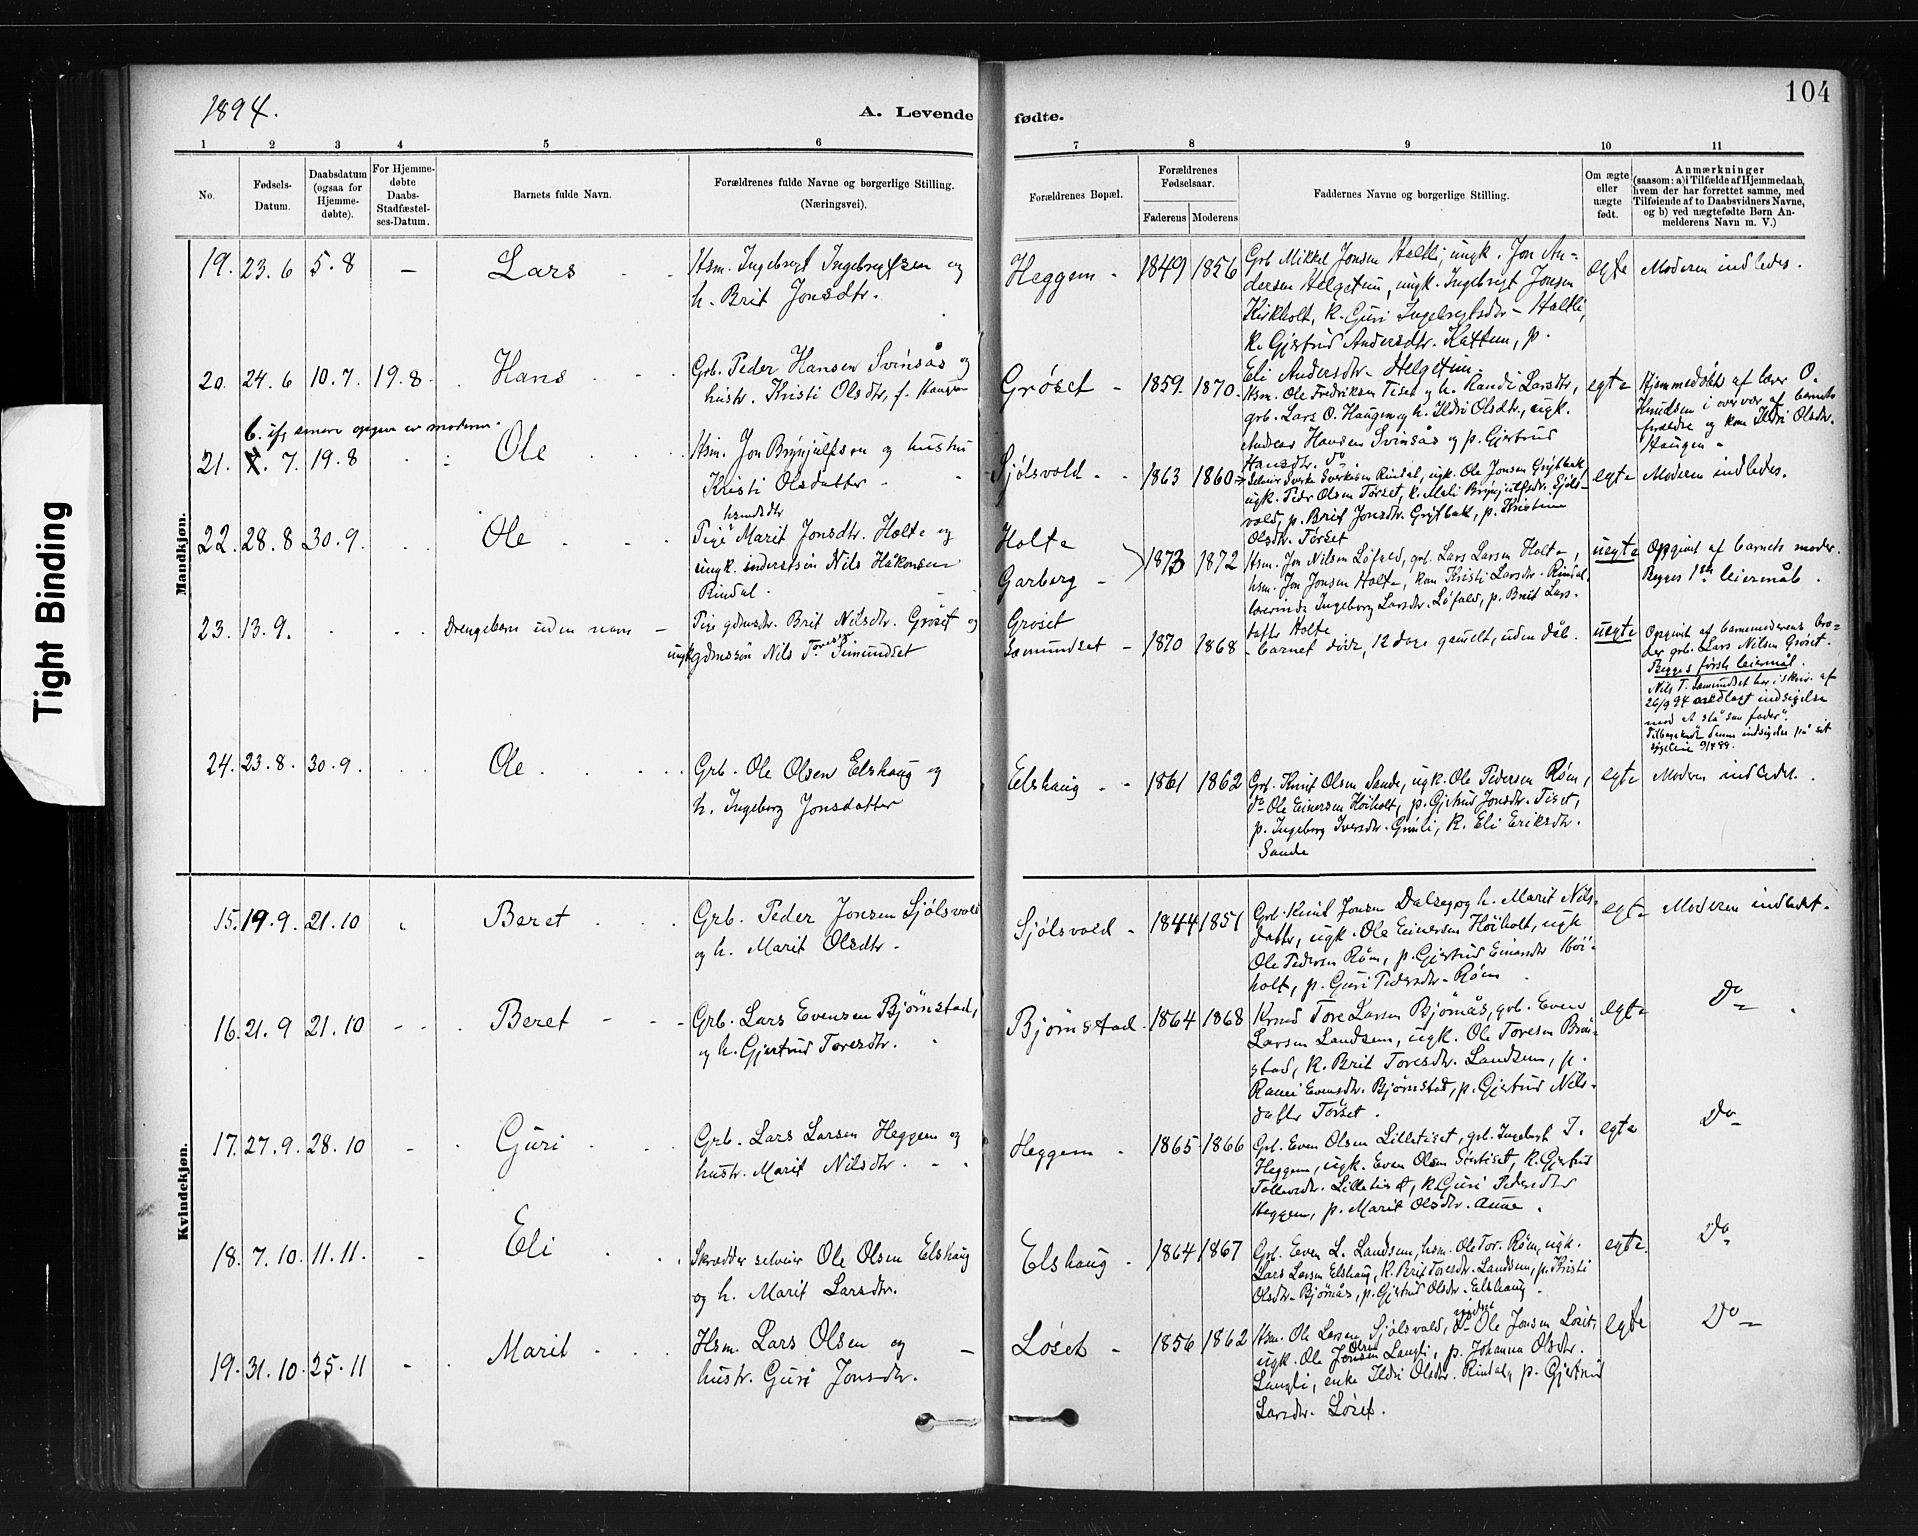 1894.
A. Levende fødte.
104
Tight Binding
1 2 3 4 5 6 7 8 9 10 11
No.
Fødsels-
Datum.
Daabsdatum
(ogsaa for
Hjemme-
døbte).
For Hjemme-
døbte
Daabs-
Stadfæstel-
ses-Datum.
Barnets fulde Navn.
Forældrenes fulde Navne og borgerlige Stilling.
(Næringsvei).
Forældrenes Bopæl.
Forældrenes
Fødselsaar.
Faderens Moderens
Faddernes Navne og borgerlige Stilling.
Om ægte
eller
uægte
født.
Anmærkninger
(saasom: a) i Tilfælde af Hjemmedaab,
hvem der har forrettet samme, med
Tilføiende af to Daabsvidners Navne,
og b) ved uægtefødte Børn An-
melderens Navn m. V.)
Mandkjøn.
19. 23.6 5.8 – Lars
Hsm. Ingebrigt Ingebrigtsen og
h. Brit Jonsdtr.
Heggem 1849 1856
Grb Mikkel Jonsen Haltli, ungk. Jon An-
dersen Helgetun, ungk. Ingebrigt Jonsen
Kirkholt, k. Guri Ingebrigtsdtr. Haltli,
k. Gjertrud Andersdtr. Kattum, p.
Eli Andersdtr. Helgetun.
egte Moderen indledes.
20. 24.6 10.7. 19.8. Hans
Grb. Peder Hansen Svinsås og
hustr. Kristi Olsdtr, f. Haugen
Grøset 1859. 1870.
Hsm. Ole Fredriksen Tiset og h. Randi Larsdtr,
grb. Lars O. Haugen og h. Ildri Olsdtr., ugk.
Andreas Hansen Svinsås og p. Gjertrud
Hansdtr. do
egte
Hjemmedøbt af lærer O.
Knudsen i overvær af barnets
forældre og kone Ildri Olsdtr.
Haugen
6. ifg senere opgave av moderen.
21. 7. 19.8 Ole
Hsm. Jon Brynjulfsen og hustru
Kristi Olsdatter
Sjølsvold 1863 1860
Selveir Sverke Sverkesen Rindal, ugk. Ole Jonsen Grytbak,
ugk. Peder Olsen Tørset, k. Mali Brynjulfsdtr. Sjøls-
vold, p. Brit Jonsdtr. Grytbak, p. Kristine
Olsdtr. Tørset
egte Moderen indledes.
22. 28.8 30.9. Ole
Pige Marit Jonsdtr. Holte og
ungk. inderstsøn Nils Håkonsen
Rindal.
Holte
Garberg 1873 1872
Hsm. Jon Nilsen Løfald, grb. Lars Larsen Holte,
hsm. Jon Jonsen Holte, kone Kristi Larsdtr. Rindal,
lærerinde Ingeborg Larsdtr. Løfald, p. Brit Lars-
datter Holte
uegte
Opgivet af barnets moder.
Begges 1ste leiermål.
23. 13.9. Drengebarn uden navn
Pige gdmsdtr. Brit Nilsdtr. Grøset og
ungk gdmssøn Nils Toresen Semundset
Grøset
Semundset 1870 1868
barnet døde, 12 dage gamelt, uden dåb.
uegte
Opgivet af barnemoderens bro-
der grb. Lars Nilsen Grøset.
Begges første leiermål.
Nils T. Semundset har i skriv. af
26/9 94 nedlagt indsigelse
mod at stå "som fader".
24. 23.8. 30.9. Ole
Grb. Ole Olsen Elshaug og
h. Ingeborg Jonsdatter
Elshaug 1861 1862
Grb. Knut Olsen Sande, ugk. Ole Pedersen Røm,
do Ole Einersen Høiholt, p. Gjertrud Jonsdtr. Tiset,
p. Ingeborg Iversdtr. Grinli, k. Eli Eriksdtr.
Sande
egte Moderen indledet.
Kvindekjøn.
15. 19.9. 21.10 Beret
Grb. Peder Jonsen Sjølsvold
og h. Marit Olsdtr.
Sjølsvold 1844 1851
Grb. Knut Jonsen Dalseg og h. Marit Nils-
datter, ugk. Ole Einersen Høiholt, ugk
Ole Pedersen Røm, p. Gjertrud Einersdtr Høi-
holt, p. Guri Pedersdtr. Røm
egte Moderen indledet.
16. 21.9 21.10 Beret
Grb. Lars Evensen Bjørnstad,
og h. Gjertrud Toresdtr.
Bjørnstad 1864 1868
Tore Larsen Bjørnås, grb. Even
Larsen Landsem, ugk. Ole Toresen
stad, k. Brit Toresdtr. Landsem, p.
Evensdtr. Bjørnstad, p. Gjertrud Nils-
datter Tørset.
egte Do
17. 27.9. 28.10 Guri
Grb. Lars Larsen Heggem og
hustr. Marit Nilsdtr.
Heggem 1865 1866
Grb. Even Olsen Lilletiset, grb. Ingebrigt I.
Heggem, ugk. Even Olsen Stortiset, k. Gjertrud
Lilletiset, k. Guri Pedersdtr
Heggem, p. Marit Olsdtr. Aune.
egte Do
18. 7.10. 11.11. Eli
Skrædder selveier Ole Olsen Elshaug
og h. Marit Larsdtr.
Elshaug 1864 1867
Grb. Even L. Landsem, hsm. Ole Tor. Røm, ugk.
Lars Larsen Elshaug, k. Brit Toresdtr. Landsem, p. Kristi
Olsdtr. Bjørnås, p. Gjertrud Olsdtr. Elshaug
egte Do
19. 31.10 25.11 Marit
Hsm. Lars Olsen og
hustr. Guri Jonsdtr.
Løset 1856 1862
Hsm. Ole Larsen Sjølsvold, do Ole Jonsen Løset,
ugk. Ole Olsen Langli, p. Johanna Olsdtr.
Langli, enke Ildri Olsdtr. Rindal, p. Gjertrud
Larsdtr. Løset.
egte Do